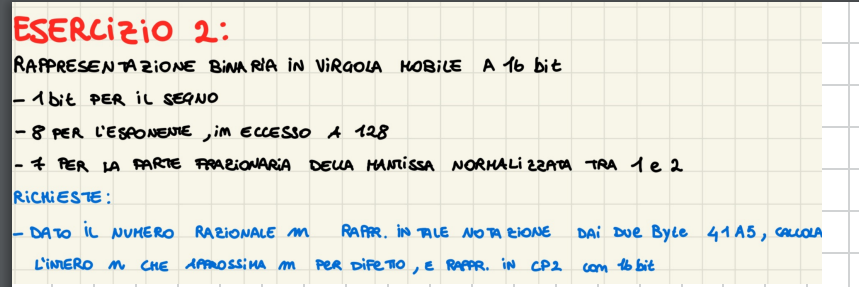 ESERCIZIO 2:
RAPPRESENTAZIONE BINARIA IN VIRGOLA MOBILE A 16 bit
- 1 bit PER IL SEGNO
- 8 PER L'ESPONENTE, im ECCESSO A 128
- 7 PER LA PARTE FRAZIONARIA DELLA MANTISSA NORMALIZZATA TRA 1 e 2
RICHIESTE:
- DATO IL NUMERO RAZIONALE m RAPPR. IN TALE NOTAZIONE DAI DUE Byte 41A5, CALCOLA
L'INTERO n CHE APPROSSIMA m PER DIFETTO, E RAPPR. IN CP2 com 16 bit